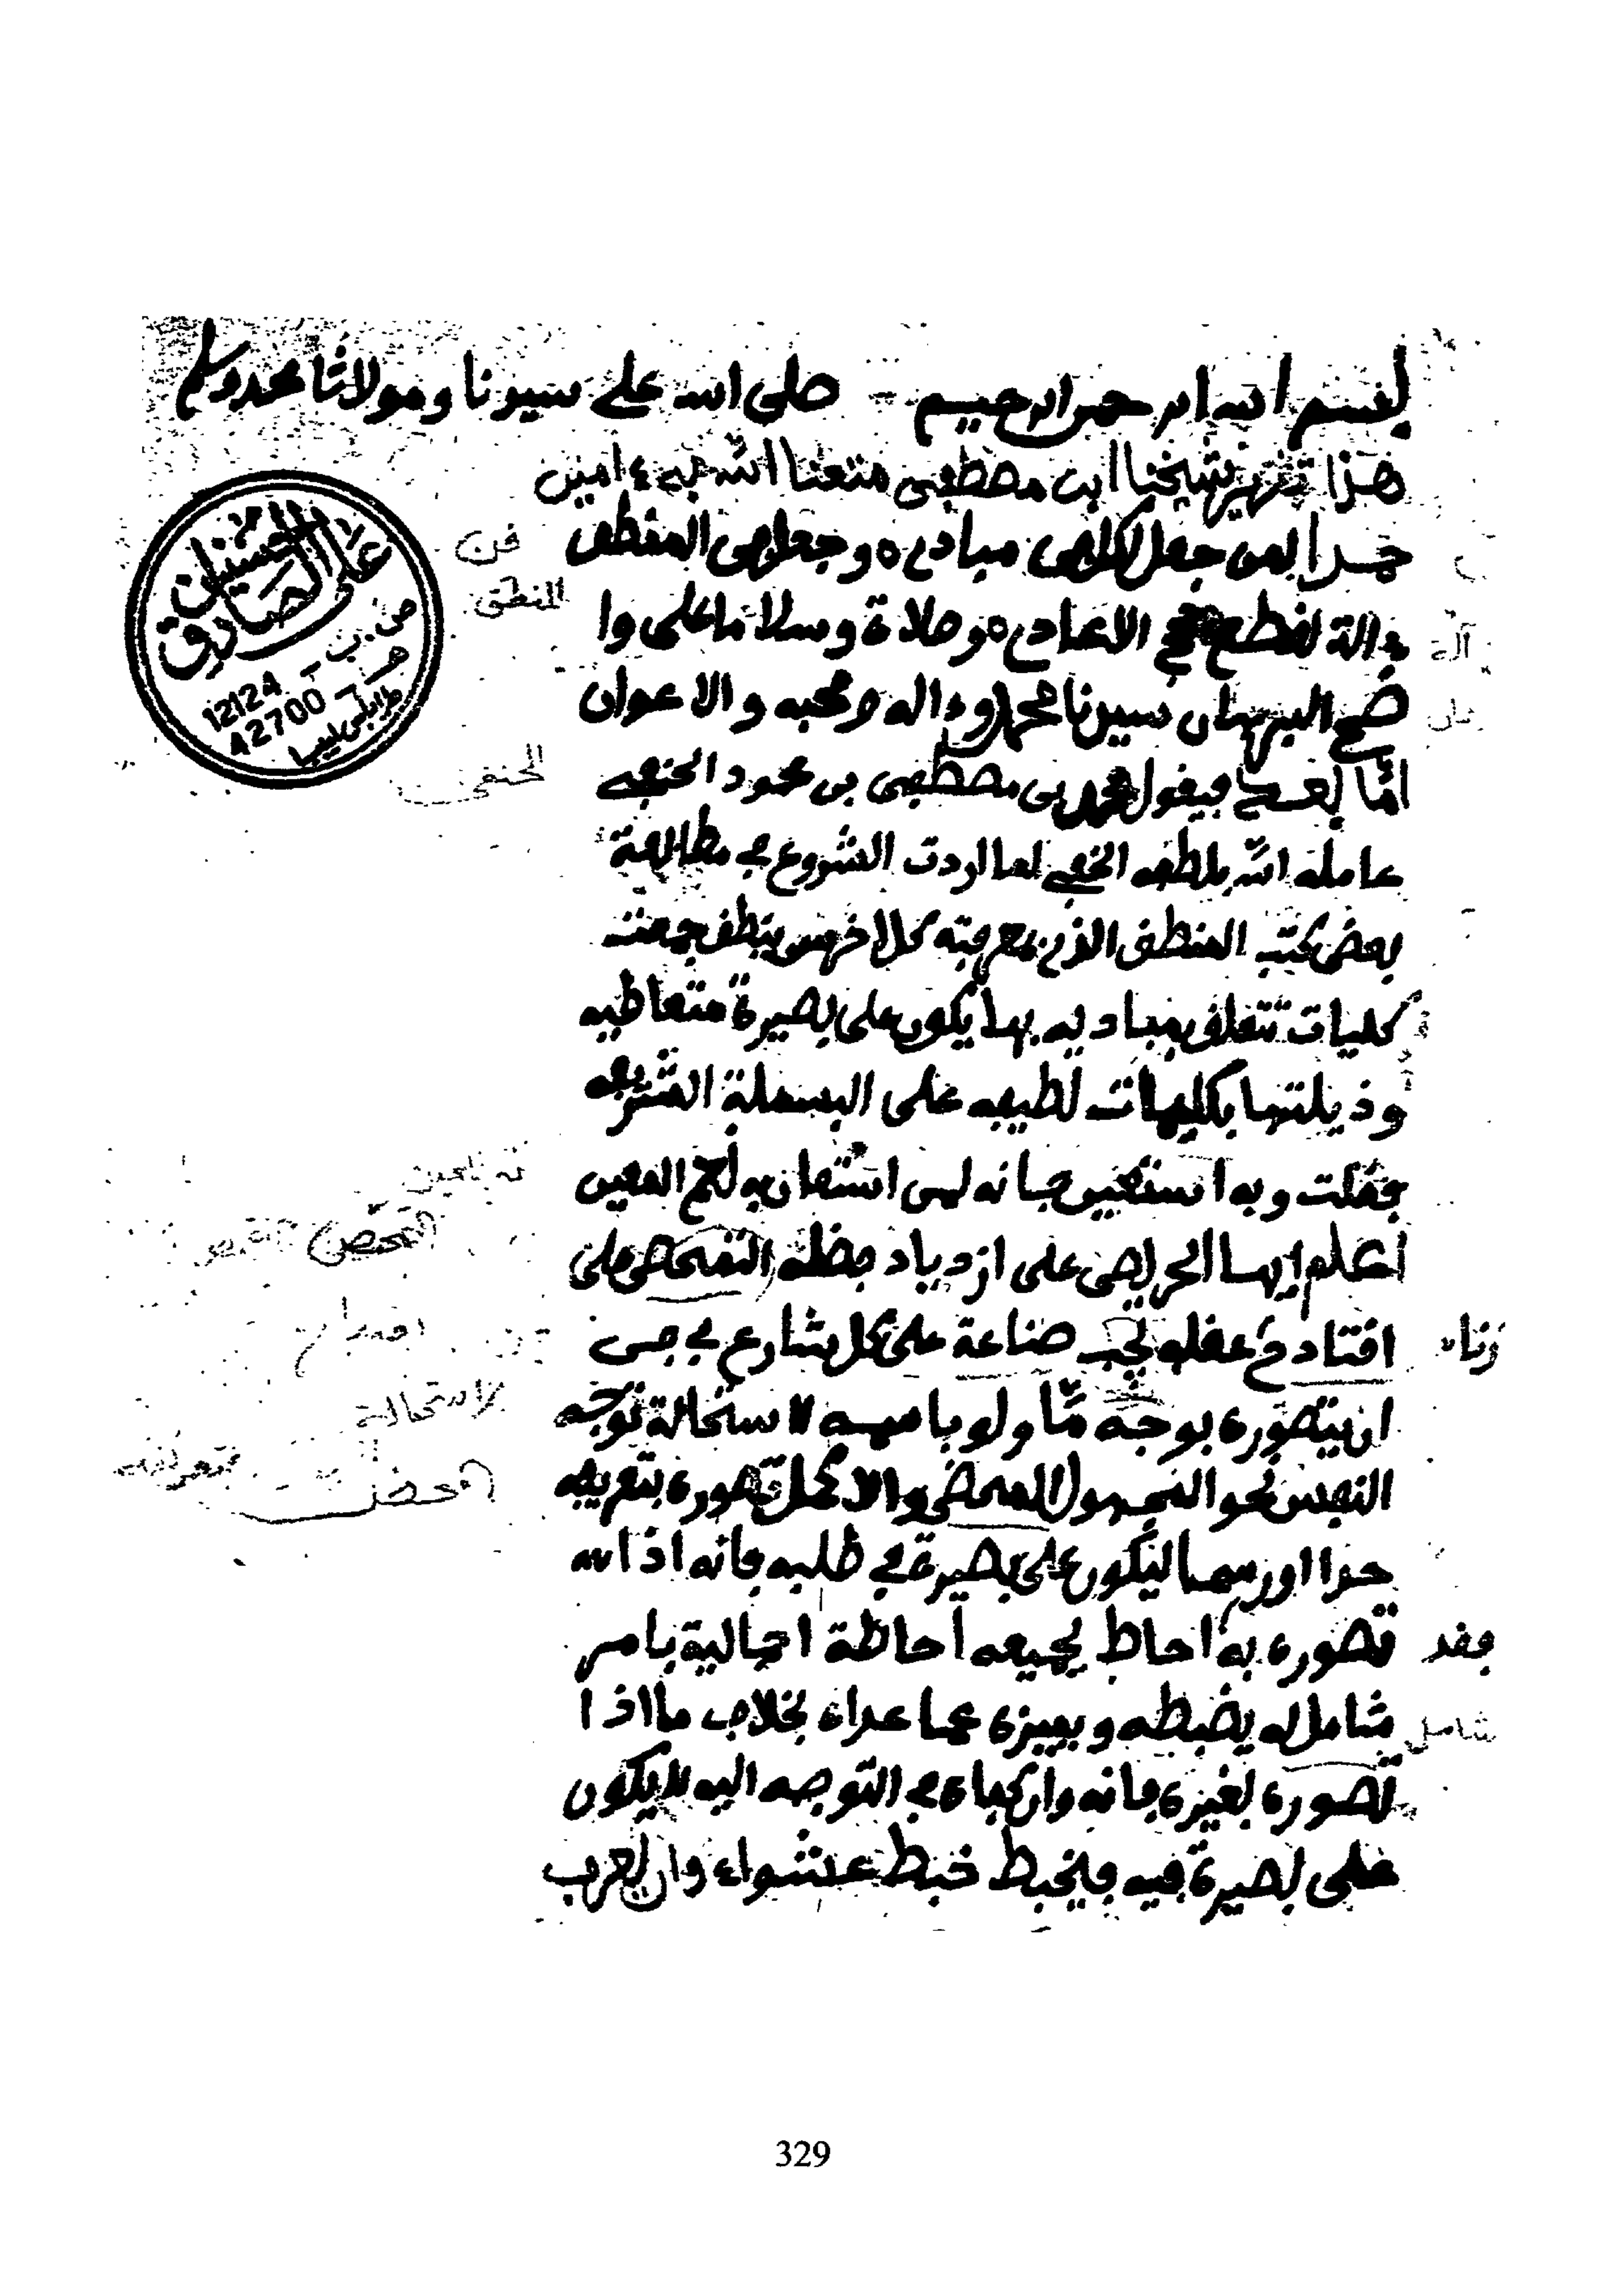 بسم الله الرحمن الرحيم صلى الله على سيدنا ومولانا محمد وسلم
هذا تقرير شيخنا ابن مصطفى متعنا الله به ءامين
حمدا لمن جعل لكل فن مبادي وجعل فن المنطق
ءالة لقطع الاعادي وصلاة وسلاما على وا
ضح البرهان سيدنا محمد وءاله وصحبه والاعوان
امّا بعد فيقول محمد بن مصطفى بن محمود الحنفي
عامله الله بلطفه الخفي لما اردت الشروع في مطالعة
بعض كتب المنطق الذي بمعرفته كل اخرس ينطق جمعت
كليمات تتعلق بمباديه بها يكون على بصيرة متعاطيه
وذيلتها بكليمات لطيفه على البسملة الشريفه
فقلت وبه استعين فانه لمن استعان به نعم المعين
اعلم ايها الحريص على ازدياد حظه التفحص على
اقتاد عقله يجب صناعة على كل شارع في فن
ان يتصوره بوجه مّا ولو باسمه لاستحالة توجه
النفس نحو المجهول المحض والاكمل تصوره بتعريفه
حدا او رسما ليكون على بصيرة في طلبه فانه اذا
تصوره به احاط بجميعه احاطة اجمالية بامر
شامل له يضبطه ويميزه عما عداه بخلاف ما اذا
تصوره بغيره فانه وان كفاه في التوجه اليه لا يكون
على بصيرة فيه فيخبط خبط عشواء وان
فن
المنطق
آلة
الحنفي
التفحص
زناد
لاستحالة
المحض
بتعريفه
فقد
شامل
علي الصادق
الحسنين
ص.ب 12124
هـ 42700
طرابلس ليبيا
329